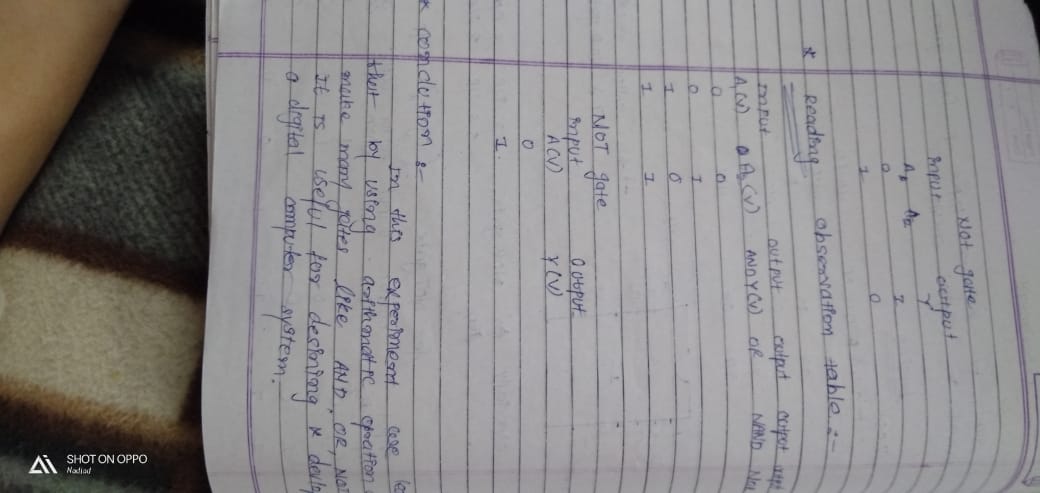 Not gate
input output
A₁ A₂ Y
0 1
1 0
* Reading observation table :-
Input output output output
A(V) A₂(V) AND Y(V) OR NAND
0 0
0 1
1 0
1 1
NOT gate
input output
A(V) Y(V)
0
1.
* conclution :-
In this experiment
that by using arithmatic opration
make many gates like AND, OR, NOT
It is useful for desining &
a digital computer system.
SHOT ON OPPO
Nadiad